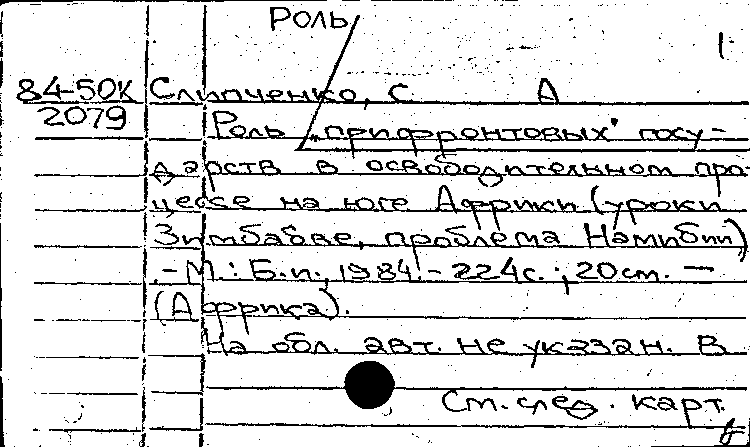 Роль
1
84-50К Слипченко, С А
2079 Роль „прифронтовых" госу-
дарств в освободительном про-
цессе на юге Африки (уроки
Зимбабве, проблема Намибии)
.-М.: Б.и., 1984.- 224с.; 20см. —
(Африка).
На обл. авт. не указан. В
См. след. карт.